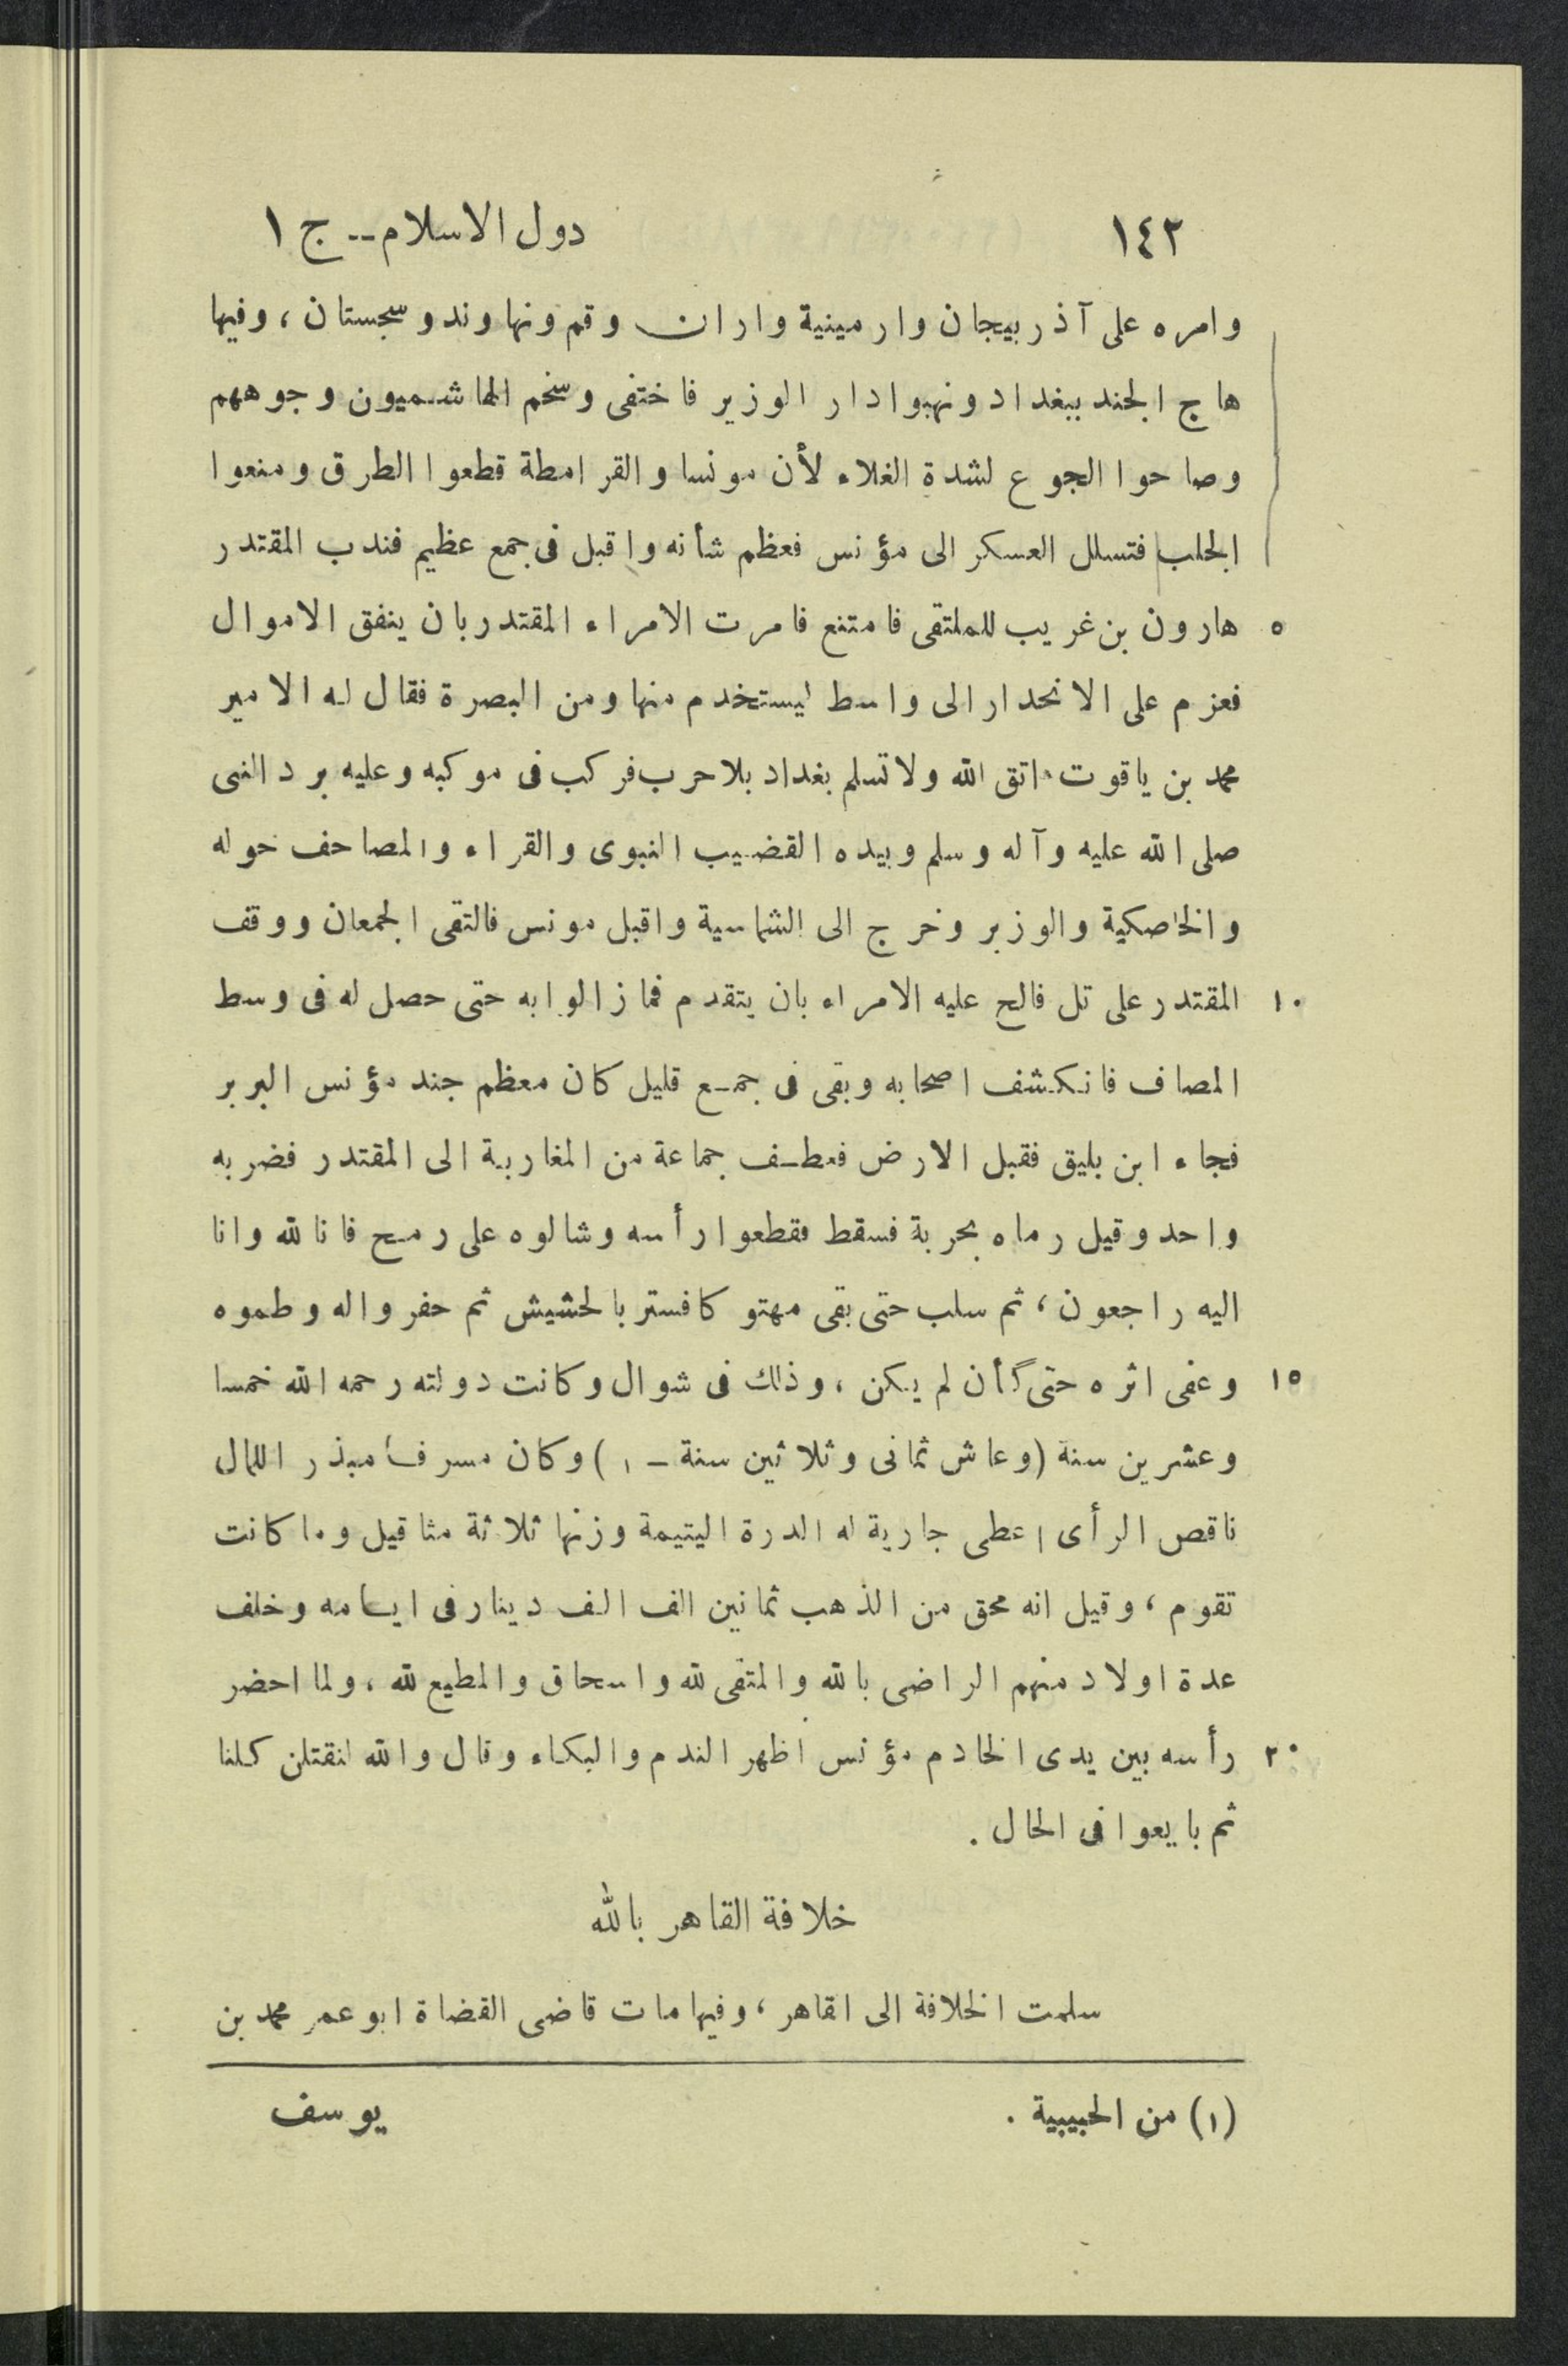 ١٤٢ دول الاسلام-- ج ١
وامره على آذربيجان وارمينية واران وقم ونهاوند وسجستان، وفيها
هاج الجند ببغداد ونهبوا دار الوزير فاختفى وسخم الهاشميون وجوههم
وصاحوا الجوع لشدة الغلاء لأن مونسا والقرامطة قطعوا الطرق ومنعوا
الجلب فتسلل العسكر الى مؤنس فعظم شأنه واقبل فى جمع عظيم فندب المقتدر
٥ هارون بن غريب للملتقى فامتنع فامرت الامراء المقتدر بان ينفق الاموال
فعزم على الانحدار الى واسط ليستخدم منها ومن البصرة فقال له الامير
محمد بن ياقوت اتق الله ولا تسلم بغداد بلا حرب فركب فى موكبه وعليه برد النبى
صلى الله عليه وآله وسلم وبيده القضيب النبوى والقراء والمصاحف حوله
والخاصكية والوزير وخرج الى الشماسية واقبل مونس فالتقى الجمعان ووقف
١٠ المقتدر على تل فالح عليه الامراء بان يتقدم فما زالوا به حتى حصل له فى وسط
المصاف فانكشف اصحابه وبقى فى جمع قليل كان معظم جند مؤنس البربر
فجاء ابن بليق فقبل الارض فعطف جماعة من المغاربة الى المقتدر فضربه
واحد وقيل رماه بحربة فسقط فقطعوا رأسه وشالوه على رمح فانا لله وانا
اليه راجعون، ثم سلب حتى بقى مهتوكا فستر بالحشيش ثم حفروا له وطموه
١٥ وعفى اثره حتى كأن لم يكن، وذلك فى شوال وكانت دولته رحمه الله خمسا
وعشرين سنة (وعاش ثمانى وثلاثين سنة - ١) وكان مسرفا مبذرا للمال
ناقص الرأى اعطى جارية له الدرة اليتيمة وزنها ثلاثة مثاقيل وما كانت
تقوم، وقيل انه محق من الذهب ثمانين الف الف دينار فى ايامه وخلف
عدة اولاد منهم الراضى بالله والمتقى لله واسحاق والمطيع لله، ولما احضر
٢٠ رأسه بين يدى الخادم مؤنس اظهر الندم والبكاء وقال والله لنقتلن كلنا
ثم بايعوا فى الحال.
خلافة القاهر بالله
سلمت الخلافة الى القاهر، وفيها مات قاضى القضاة ابو عمر محمد بن
(١) من الحبيبية. يوسف